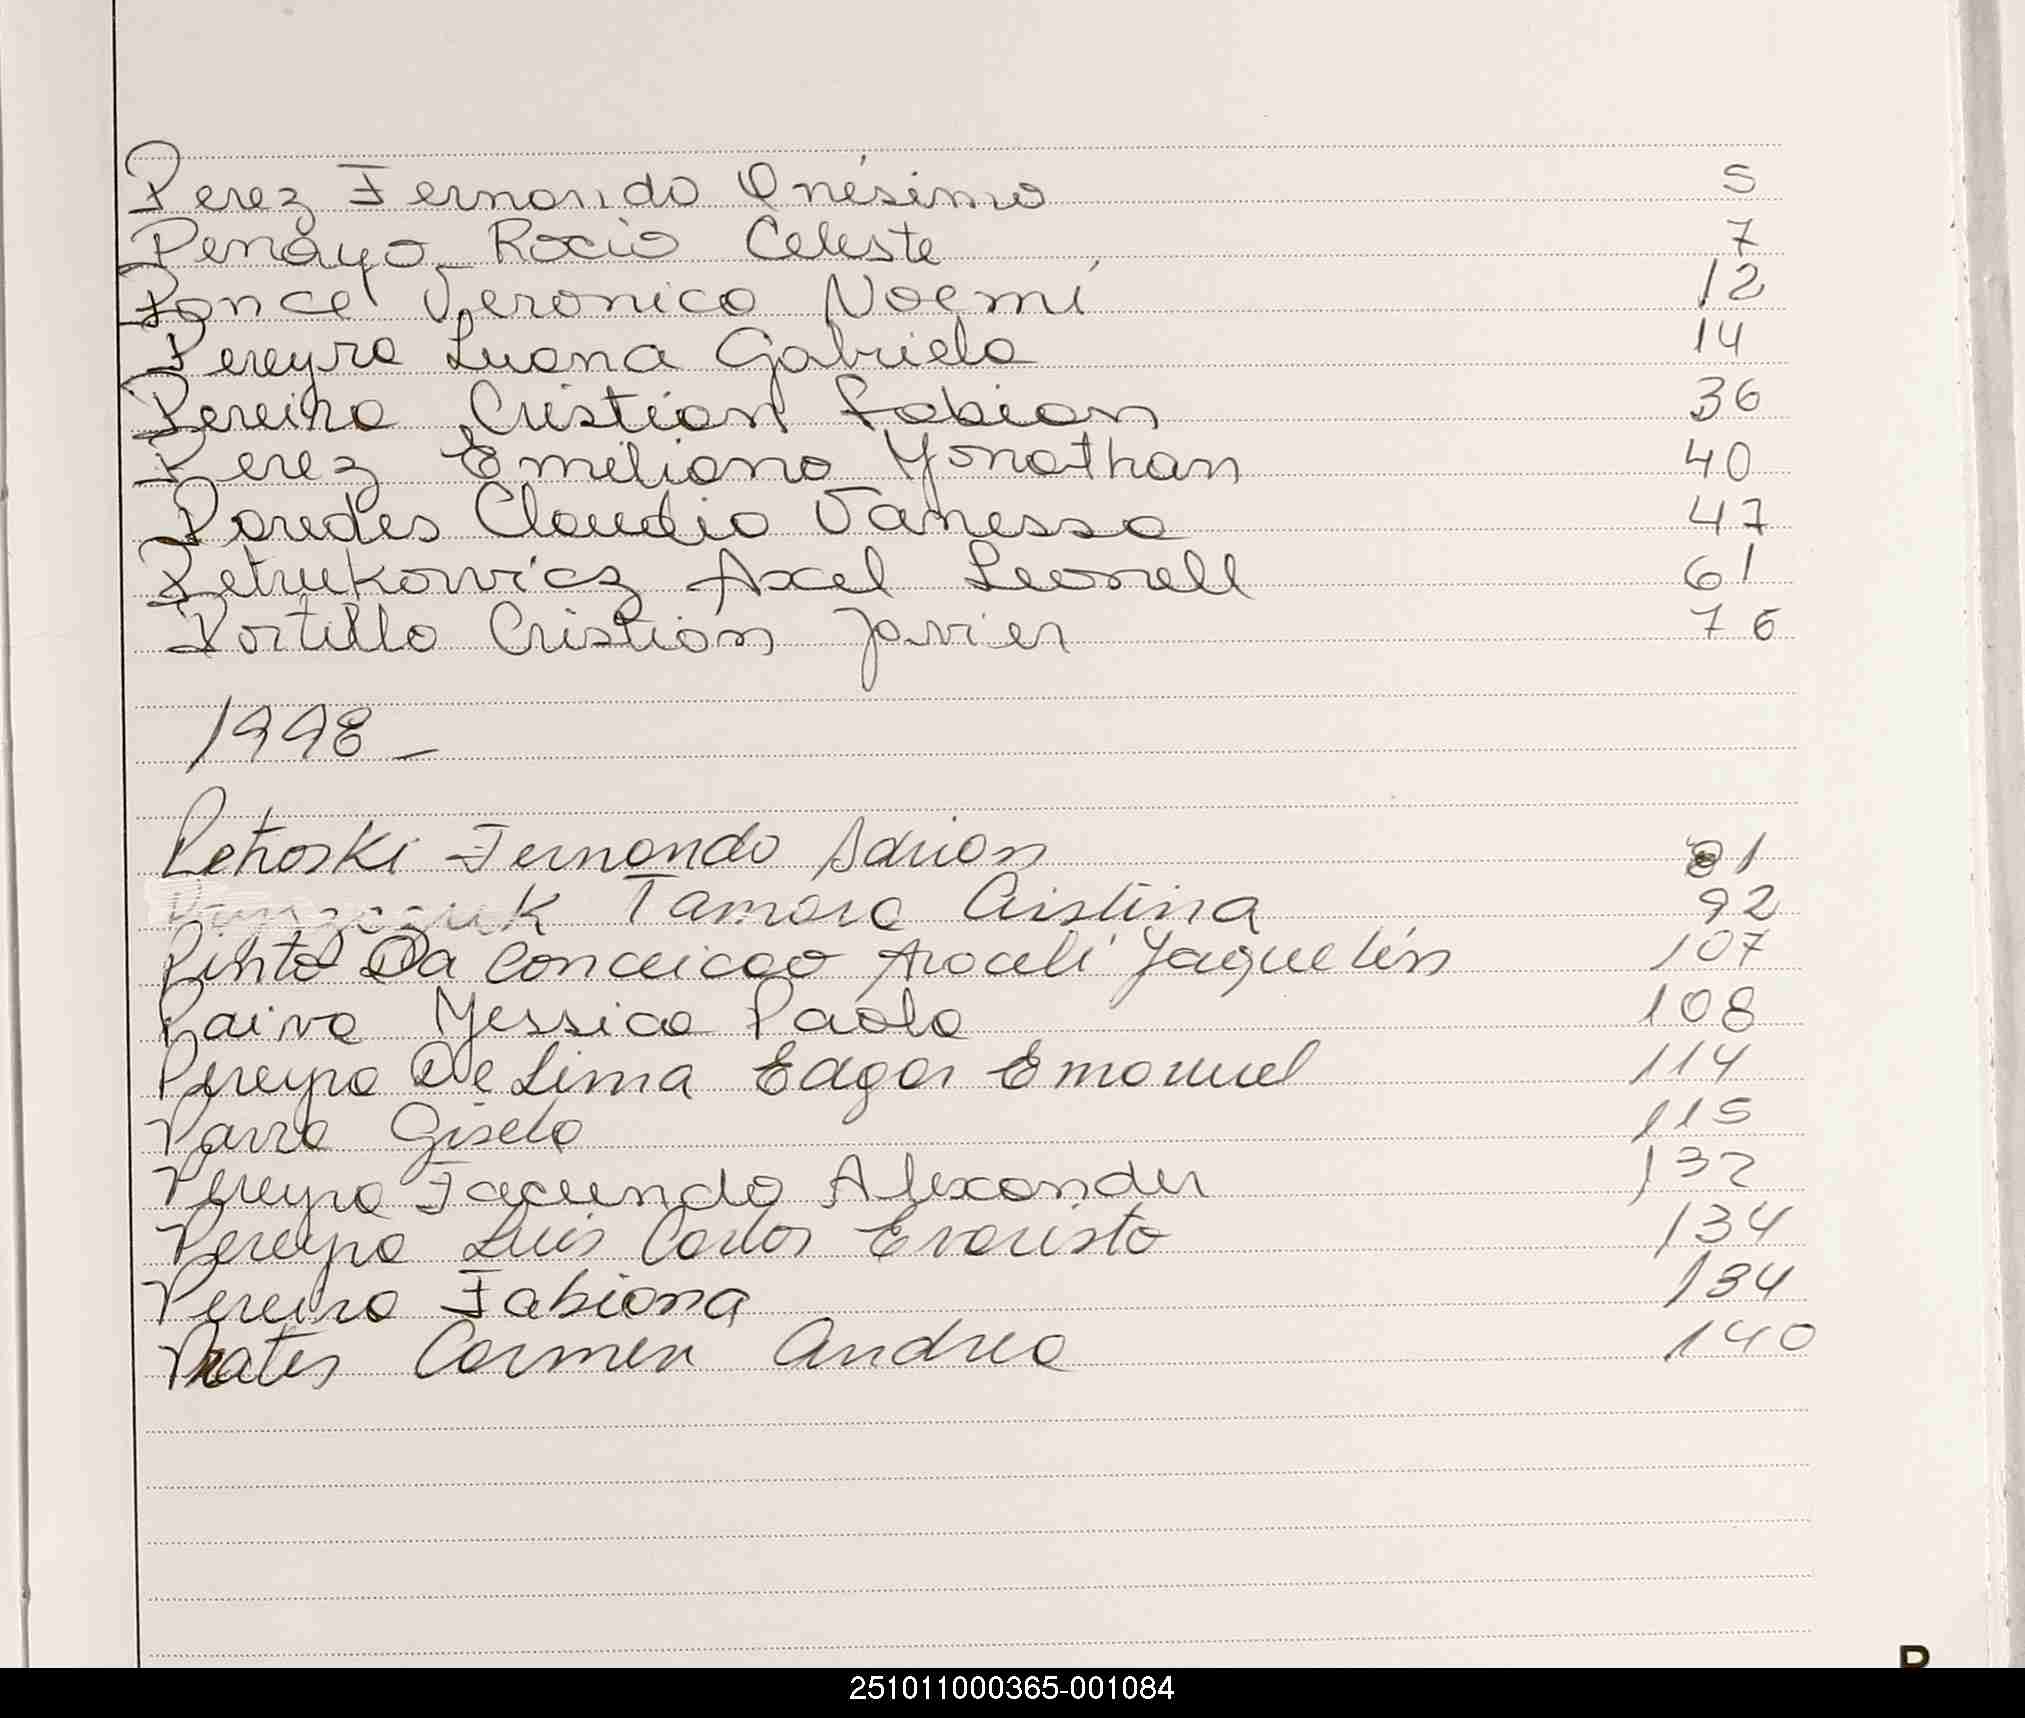 Perez Fernando Onésimo 5
Penayo Rocio Celeste 7
Ponce Veronica Noemí 12
Pereyra Luana Gabriela 14
Pereira Cristian Fabian 36
Perez Emiliano Yonathan 40
Paredes Claudia Vanessa 47
Petrukowicz Axel Leonell 61
Portillo Cristian Javier 76
1998_
Petroski Fernando Adrian 81
Tamara Cristina 92
Pinto Da Conceicao Araceli Jaquelín 107
Paiva Yessica Paola 108
Pereyra De Lima Edgar Emanuel 114
Parra Gisela 115
Pereyra Facundo Alexander 132
Pereyra Luis Carlos Evaristo 134
Pereira Fabiana 134
Prates Carmen Andrea 140
P
251011000365-001084